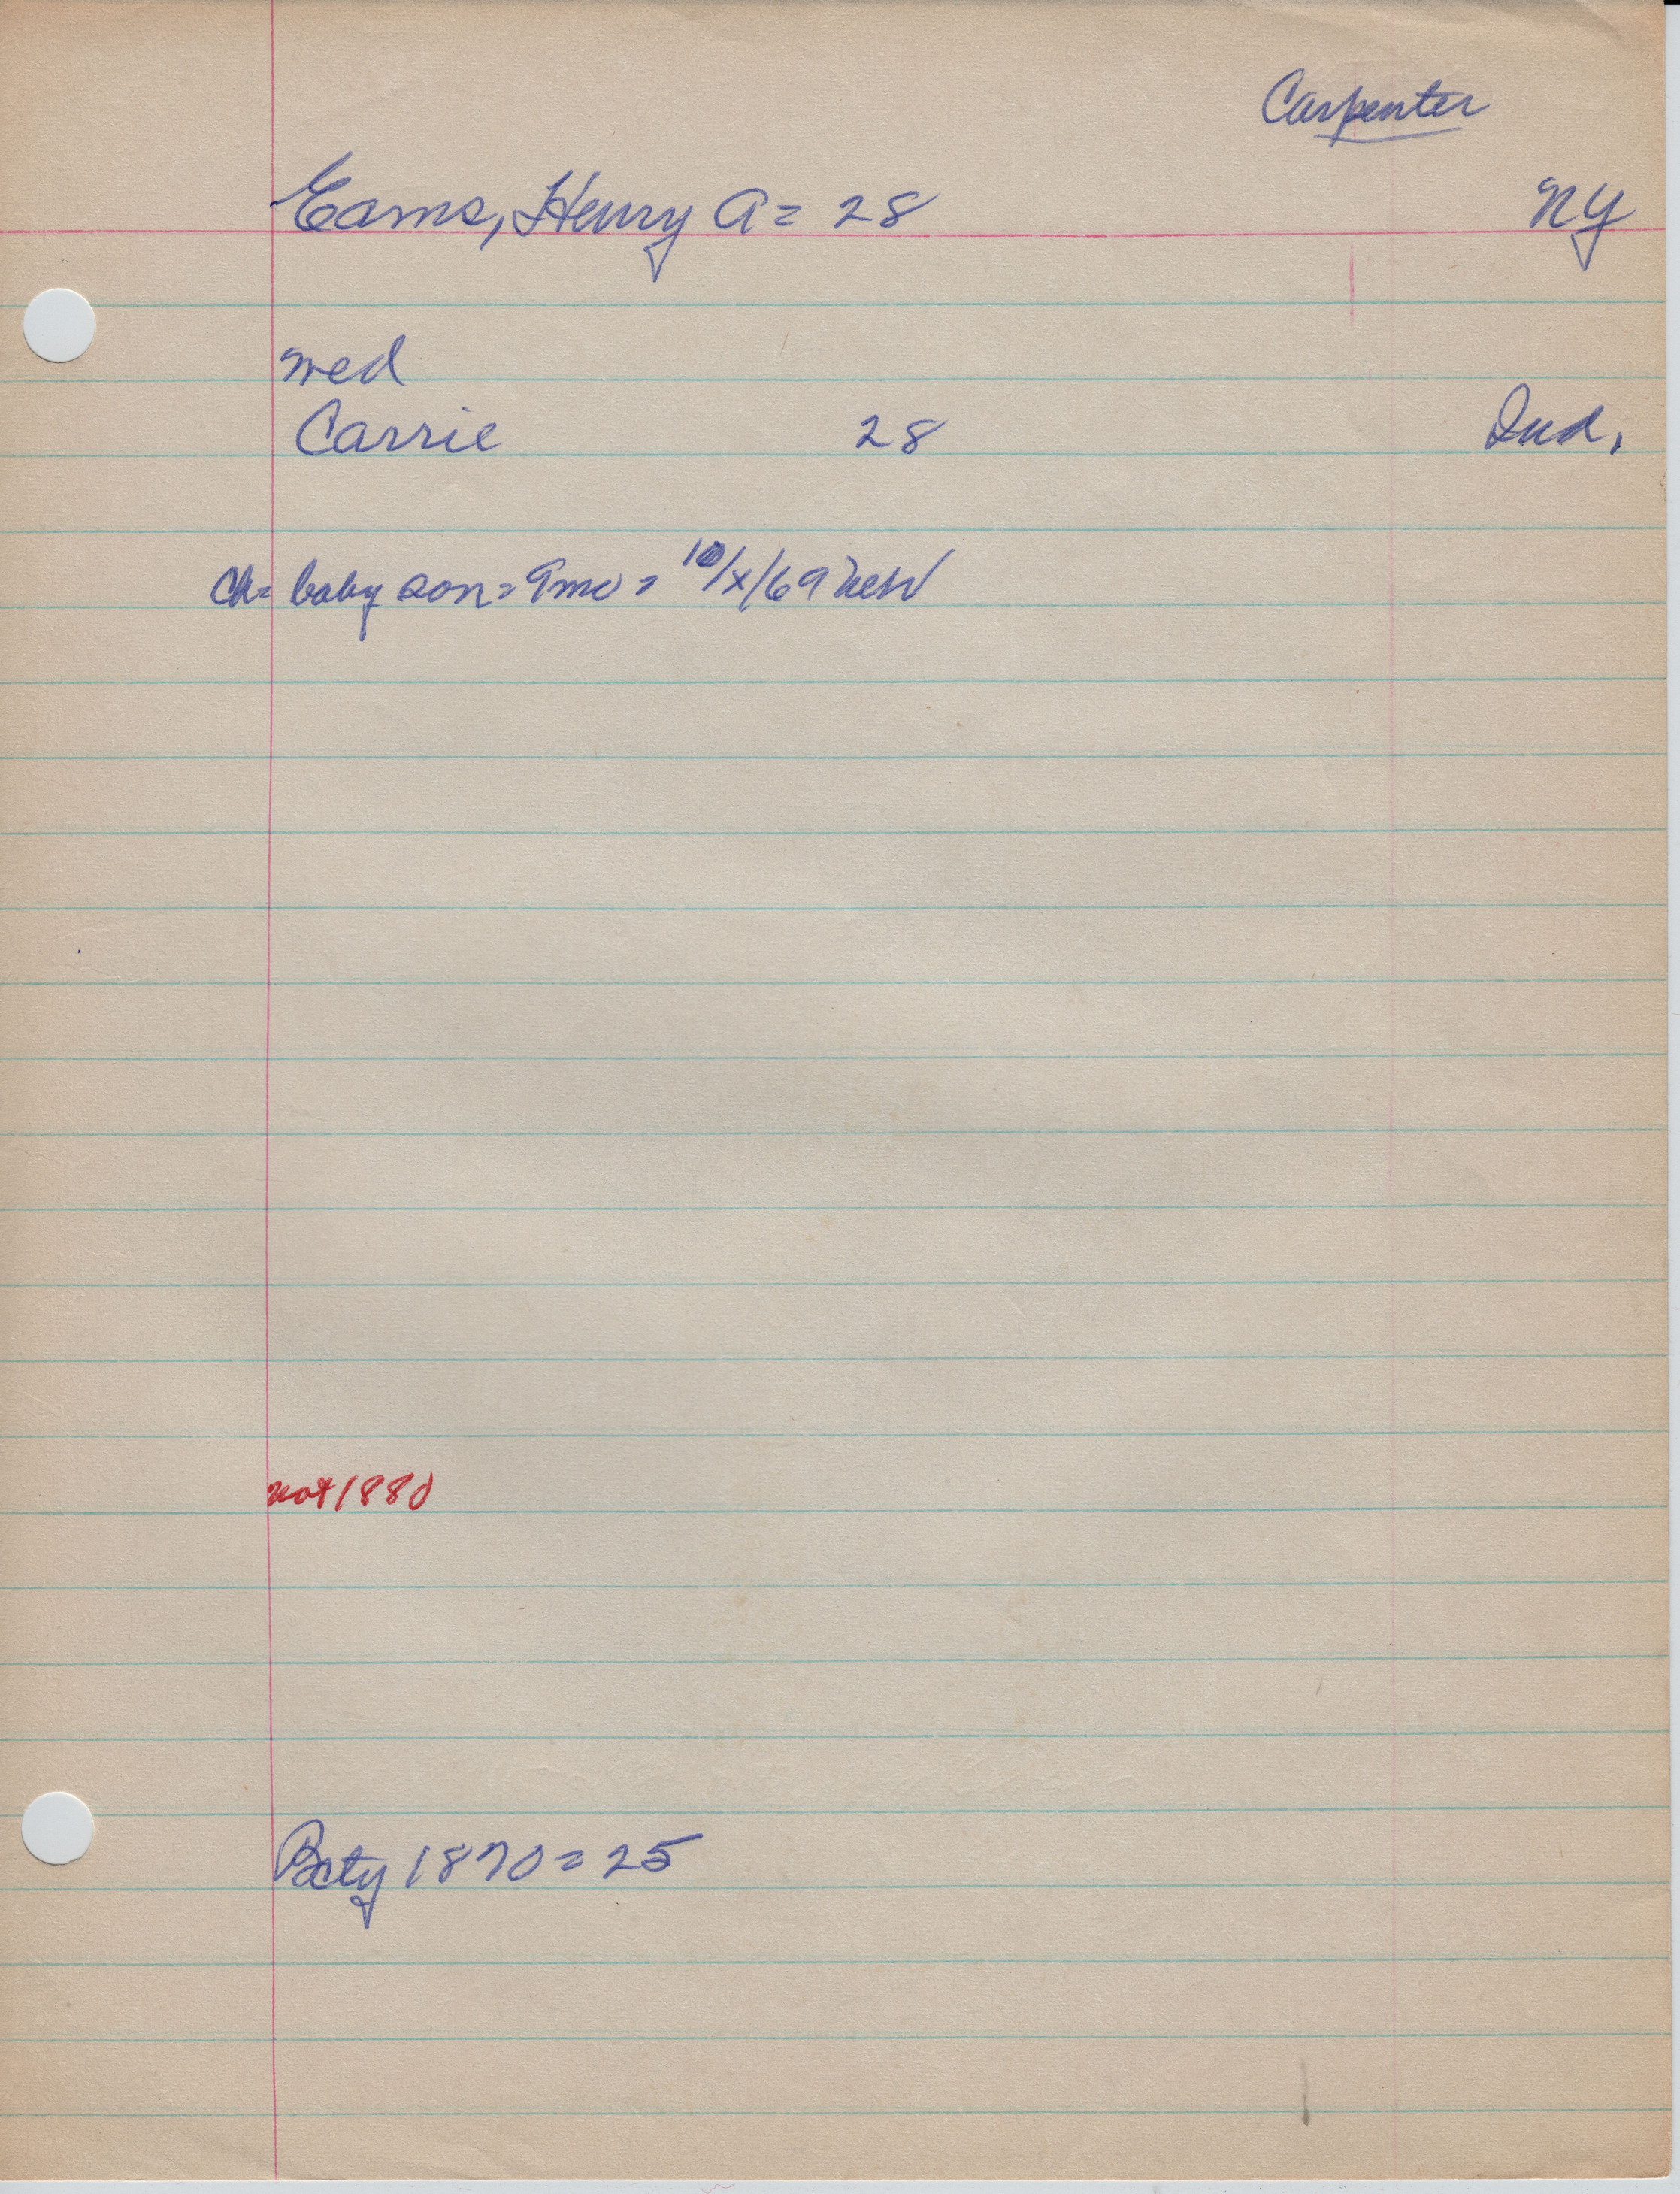 Carpenter
Eams, Henry A = 28 NY
wed
Carrie 28 Ind.
Ch = baby son = 9mo = 10/x/69
not 1880
1870 = 25